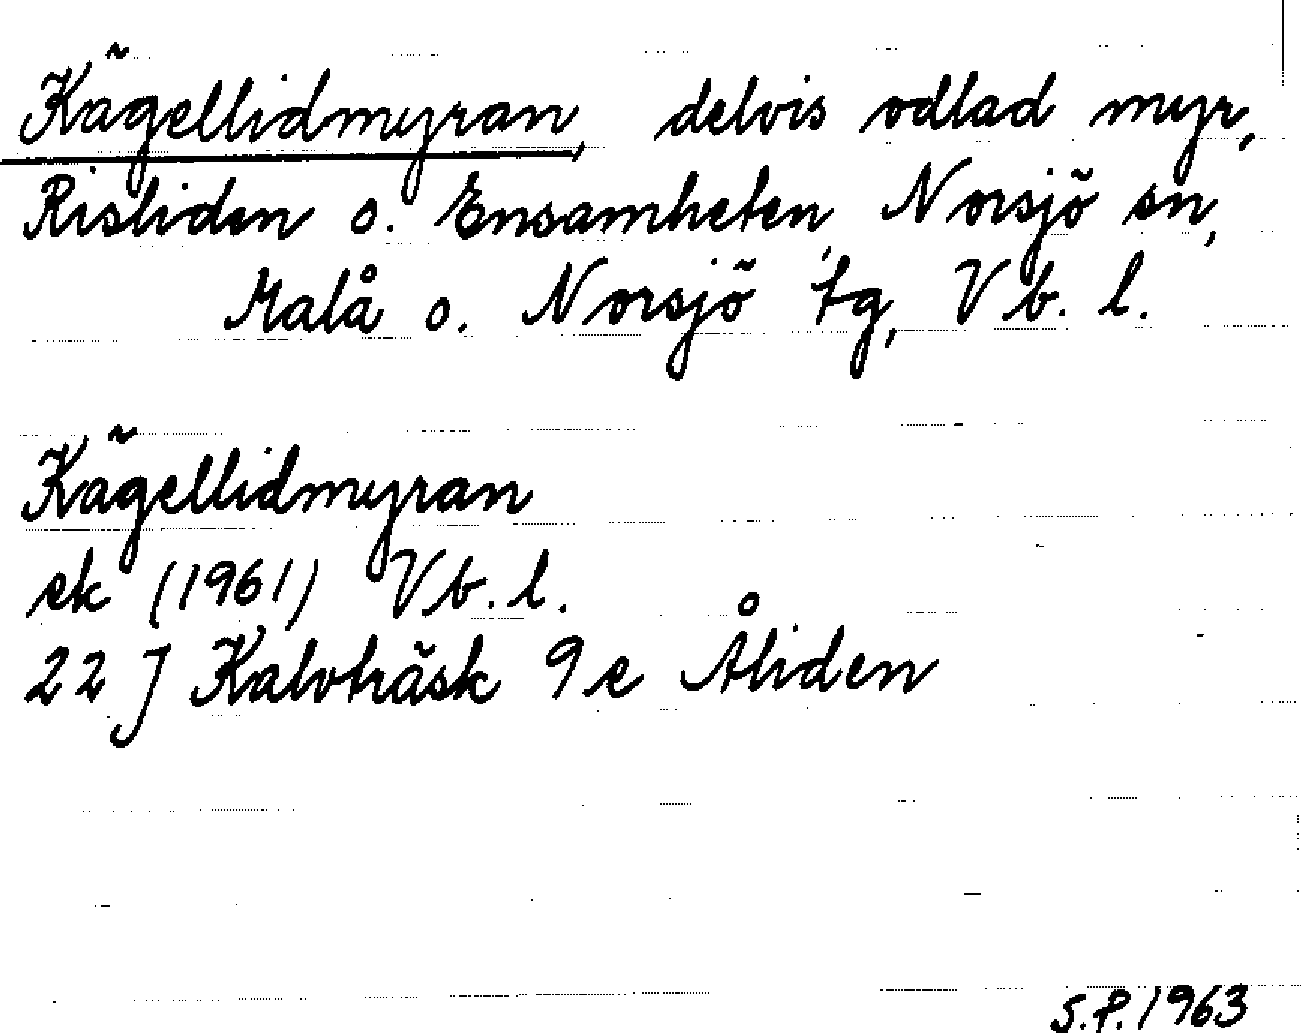 Kägellidmyran, delvis odlad myr,
Risliden o. Ensamheten, Norsjö sn,
Malå o. Norsjö tg, Vb. l.
Kägellidmyran
ek (1961) Vb. l.
22 J Kalvträsk 9 e Åliden
S.P. 1963